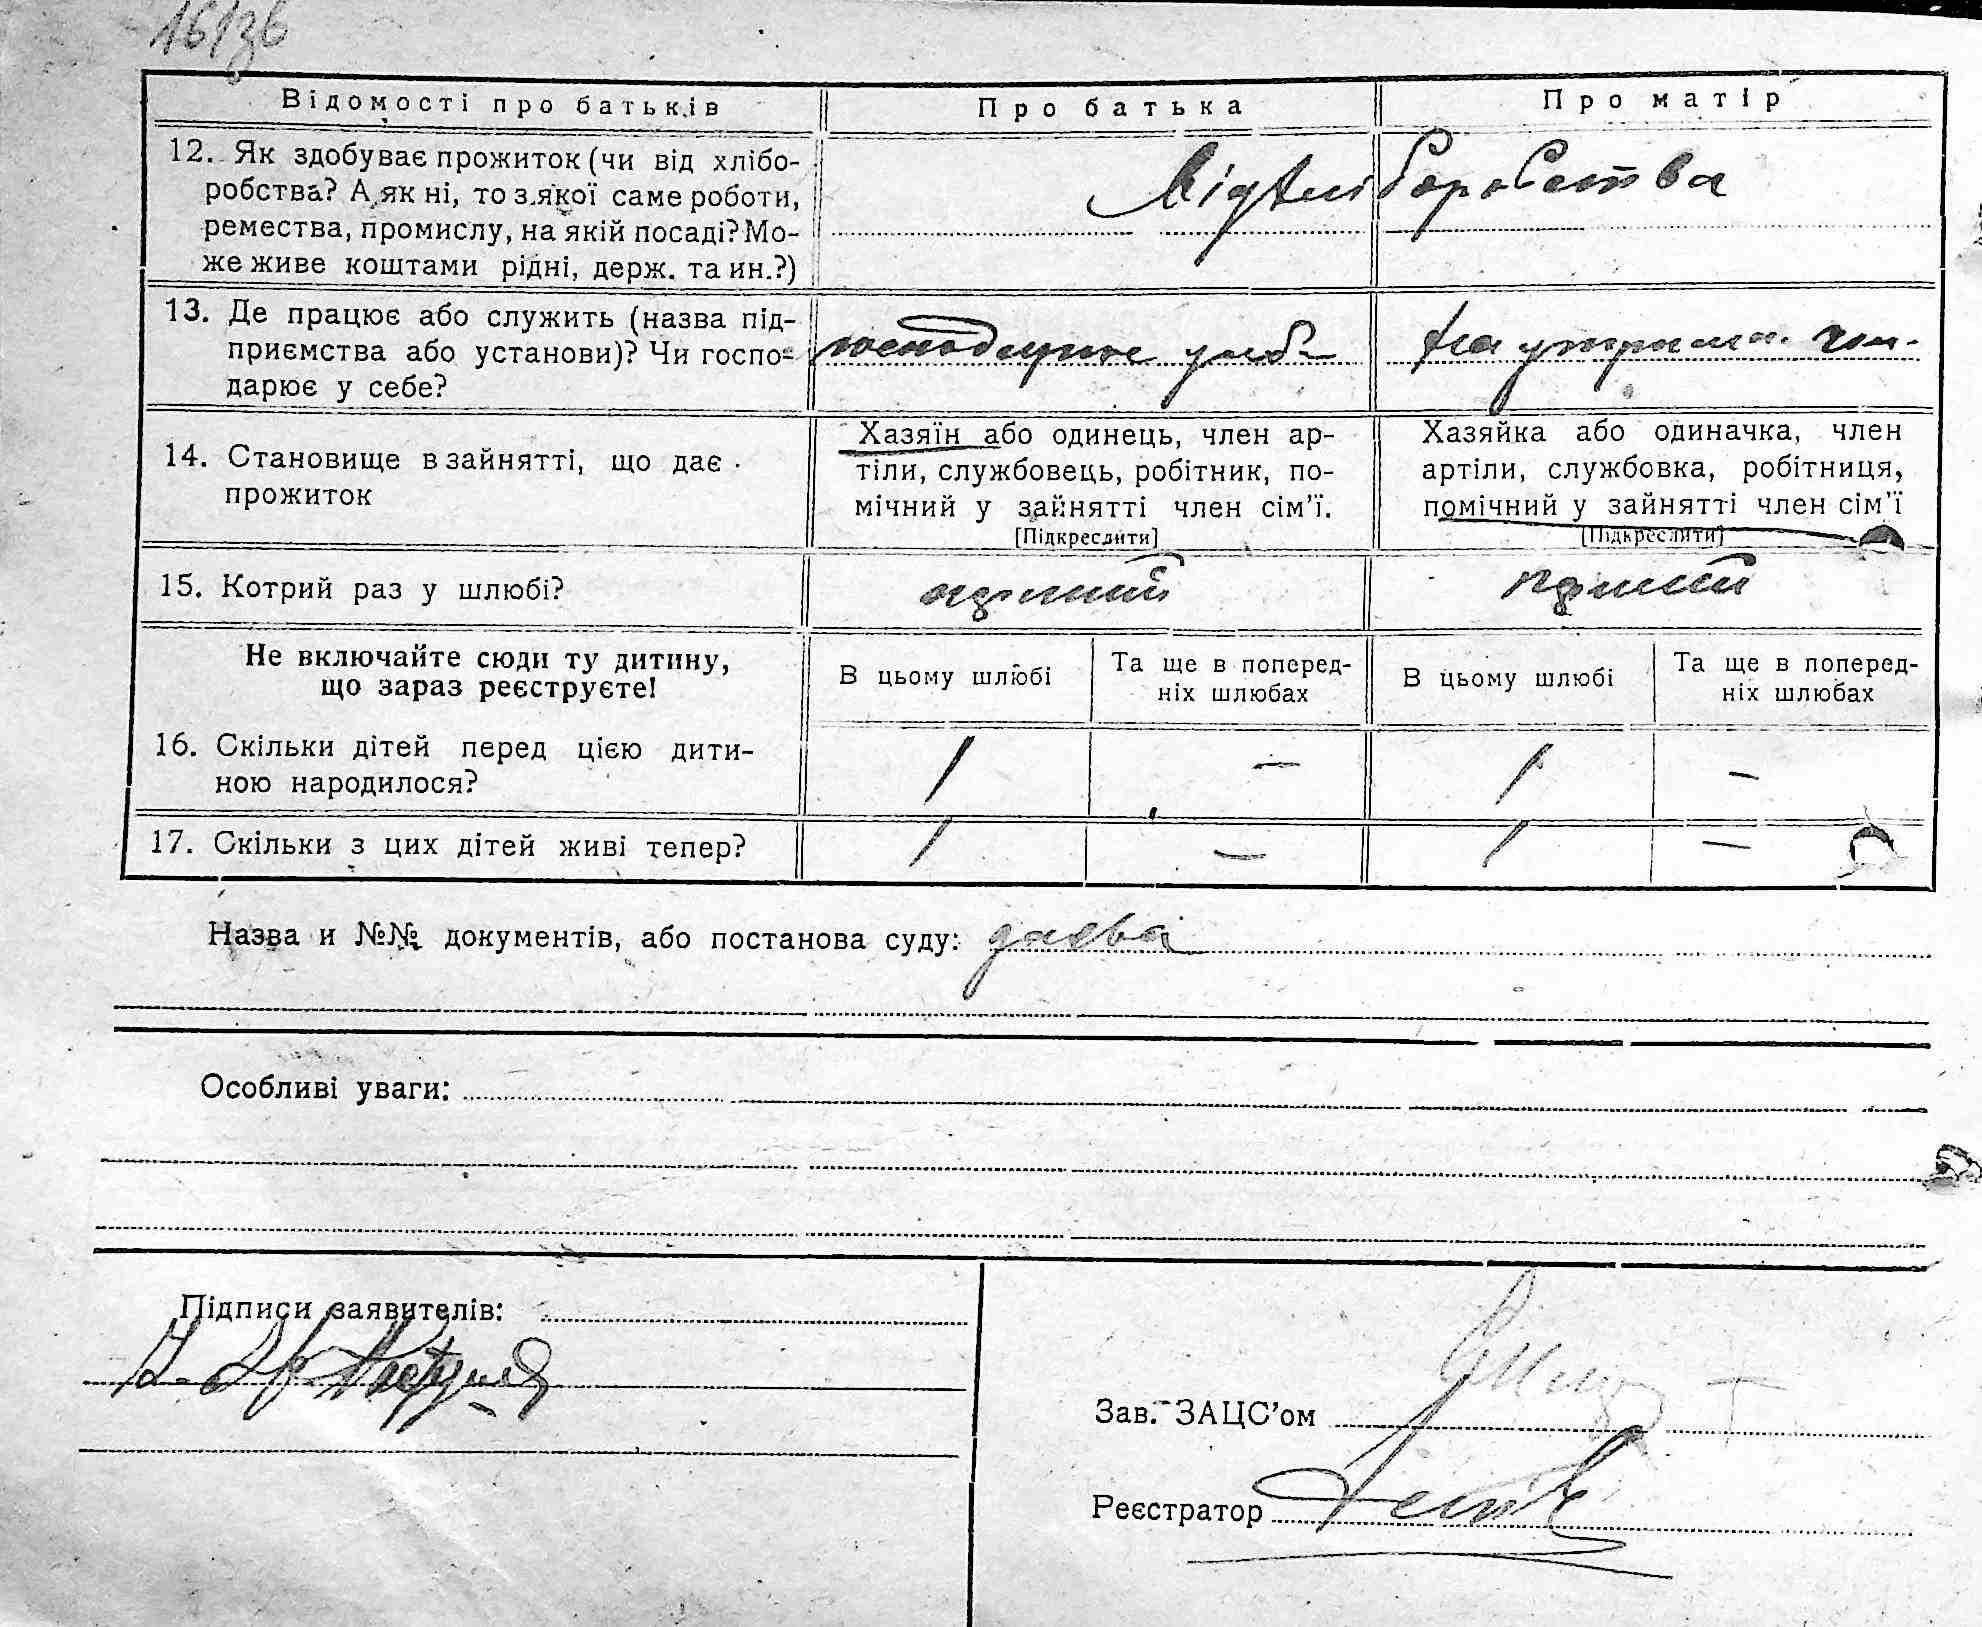 Відомості про батьків
Про батька
Про матір
12. Як здобуває прожиток (чи від хлібо-
робства? А як ні, то з якої саме роботи,
ремества, промислу, на якій посаді? Мо-
же живе коштами рідні, держ. та ин.?)
Від хліборобства
13. Де працює або служить (назва під-
приємства або установи)? Чи госпо-
дарює у себе?
на утриман. чол.
14. Становище в зайнятті, що дає
прожиток
Хазяїн або одинець, член ар-
тіли, службовець, робітник, по-
мічний у зайнятті член сім'ї.
[Підкреслити]
Хазяйка або одиначка, член
артіли, службовка, робітниця,
помічний у зайнятті член сім'ї
[Підкреслити]
15. Котрий раз у шлюбі?
перший
перший
Не включайте сюди ту дитину,
що зараз реєструєте!
В цьому шлюбі
Та ще в поперед-
ніх шлюбах
В цьому шлюбі
Та ще в поперед-
ніх шлюбах
16. Скільки дітей перед цією дити-
ною народилося?
1 — 1 —
17. Скільки з цих дітей живі тепер?
1 — 1 —
Назва и №№ документів, або постанова суду:
Особливі уваги:
Підписи заявителів:
Зав. ЗАЦС'ом
Реєстратор